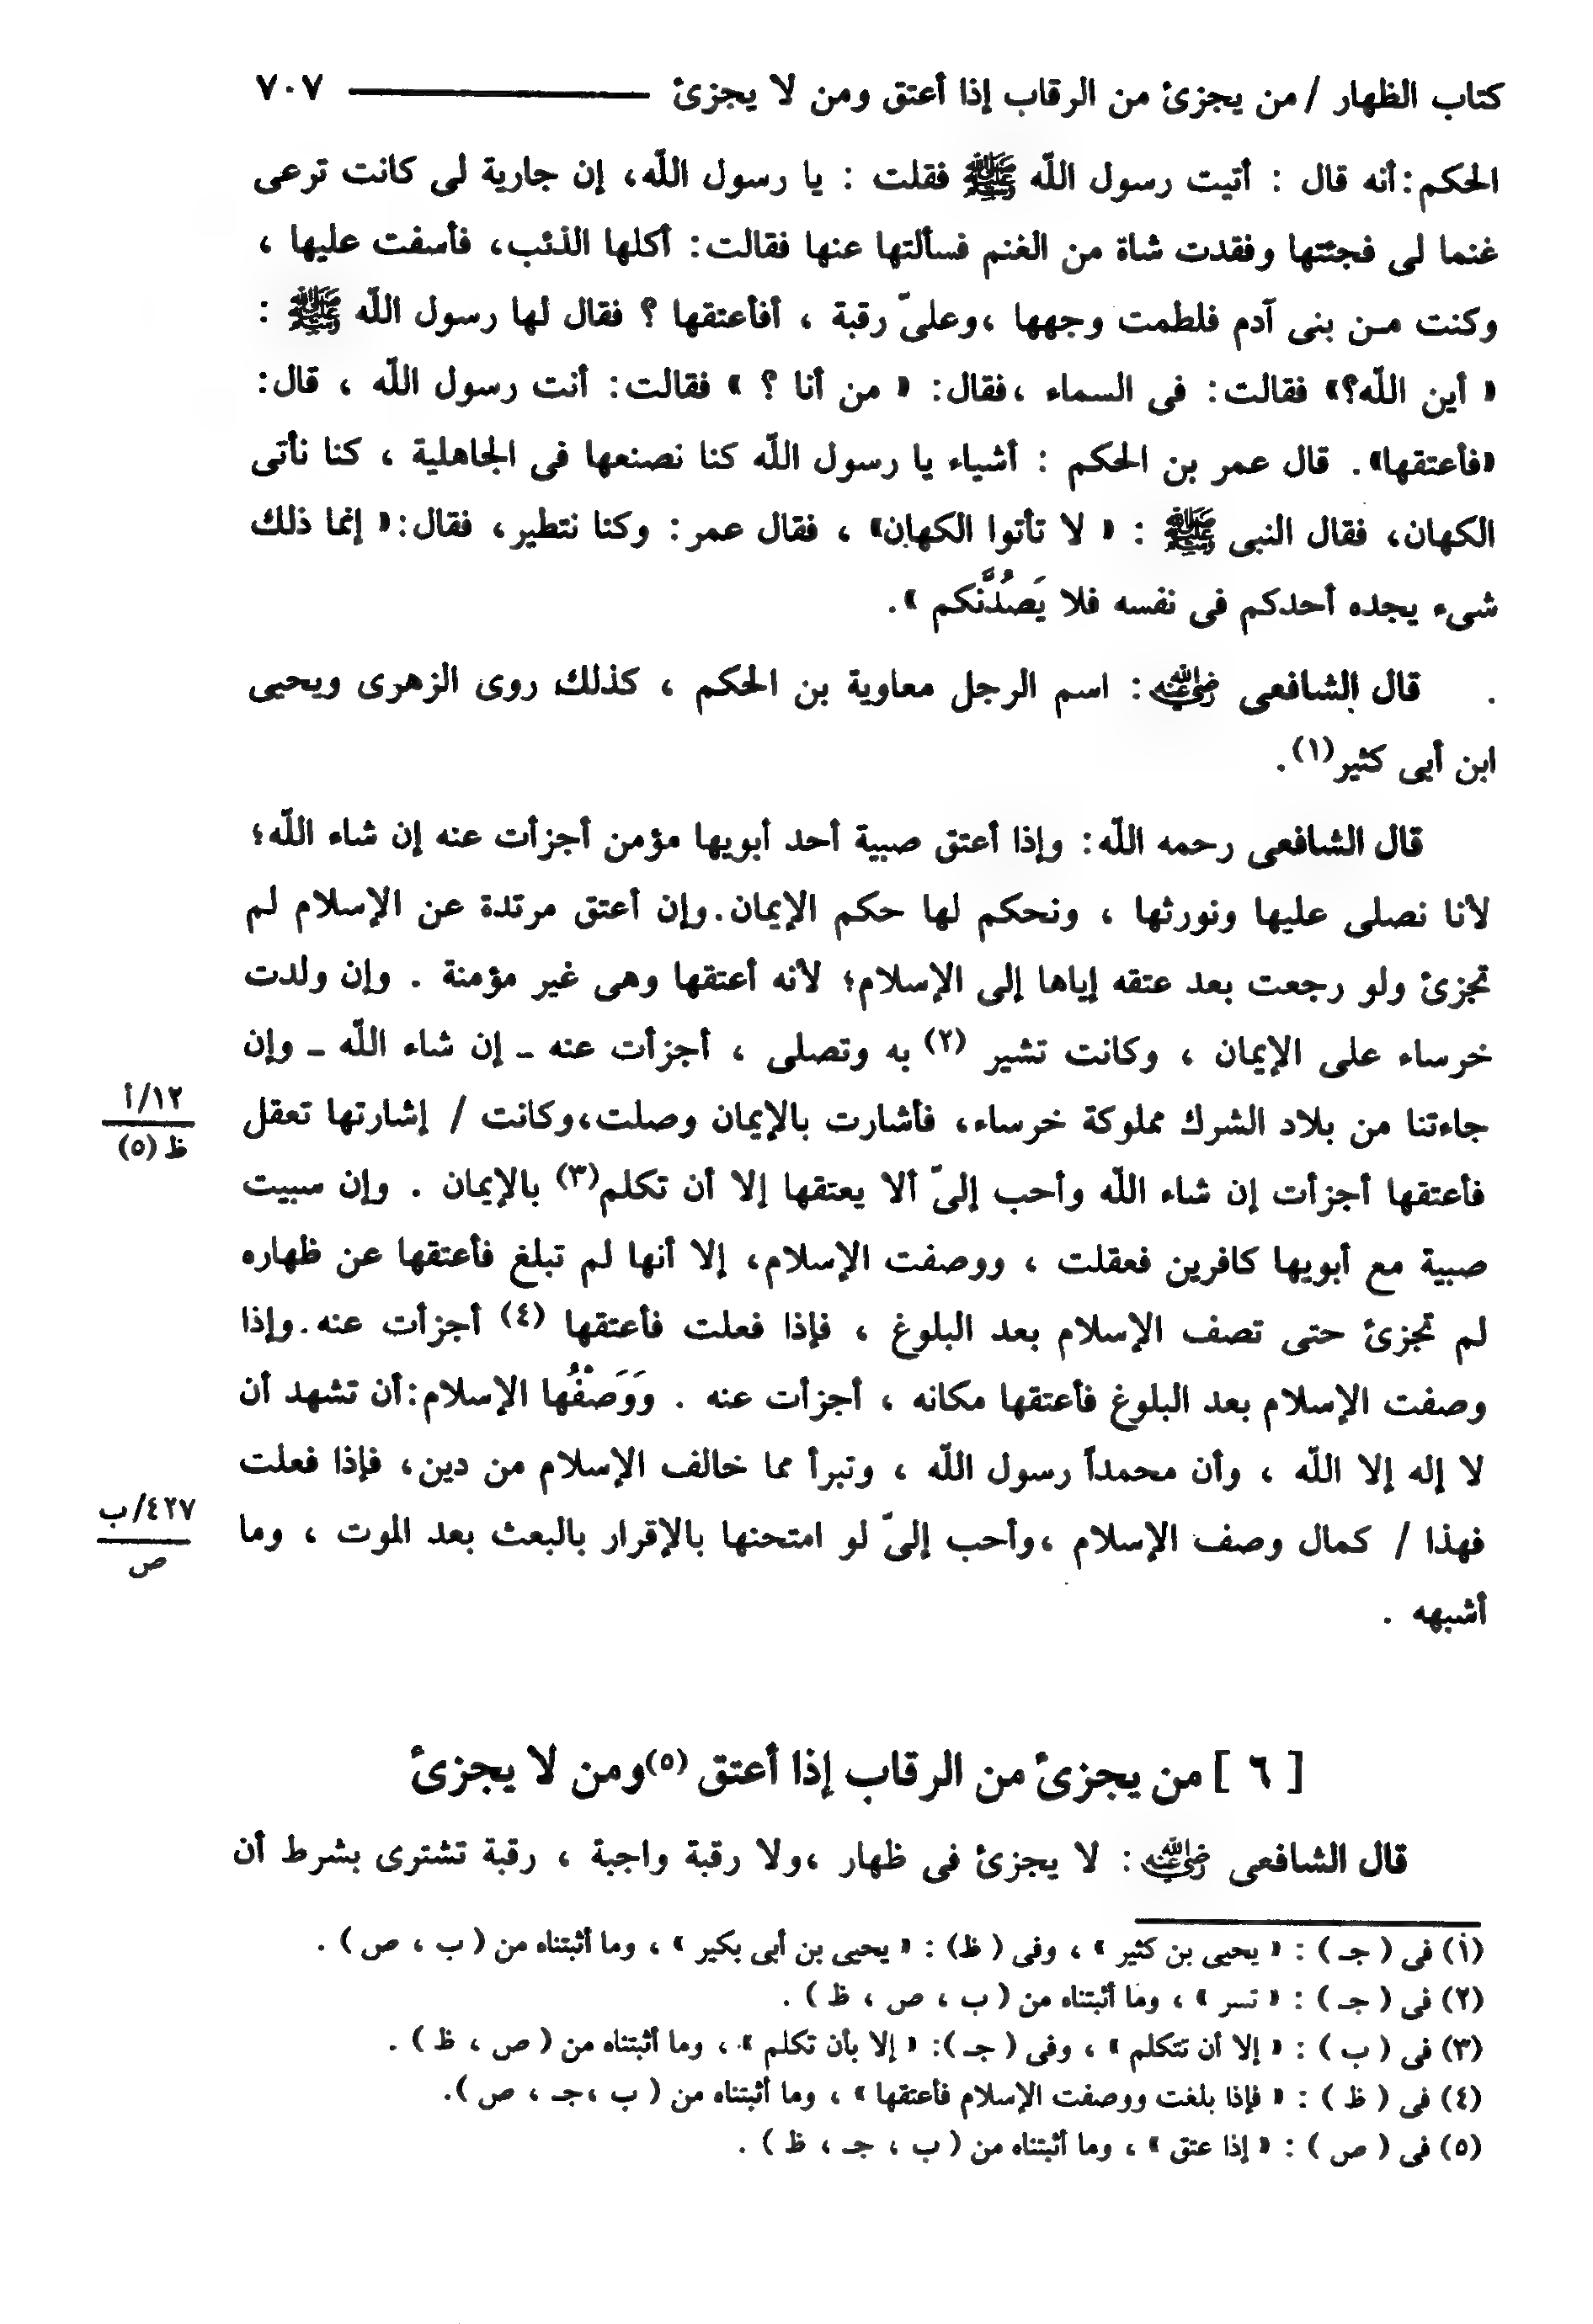 كتاب الظهار / من يجزئ من الرقاب إذا أعتق ومن لا يجزئ ٧٠٧
الحكم: أنه قال : أتيت رسول اللّه ﷺ فقلت : يا رسول اللّه، إن جارية لى كانت ترعى
غنما لى فجئتها وفقدت شاة من الغنم فسألتها عنها فقالت: أكلها الذئب، فأسفت عليها ،
وكنت من بنى آدم فلطمت وجهها ،وعلىّ رقبة ، أفأعتقها ؟ فقال لها رسول اللّه ﷺ :
« أين اللّه؟» فقالت: فى السماء ،فقال: « من أنا ؟ » فقالت: أنت رسول اللّه ، قال:
«فأعتقها». قال عمر بن الحكم : أشياء يا رسول اللّه كنا نصنعها فى الجاهلية ، كنا نأتى
الكهان، فقال النبى ﷺ : « لا تأتوا الكهان» ، فقال عمر: وكنا نتطير، فقال:« إنما ذلك
شىء يجده أحدكم فى نفسه فلا يَصُدَّنكم ».
قال الشافعى رضي الله عنه: اسم الرجل معاوية بن الحكم ، كذلك روى الزهرى ويحيى
ابن أبى كثير(١).
قال الشافعى رحمه اللّه: وإذا أعتق صبية أحد أبويها مؤمن أجزأت عنه إن شاء اللّه؛
لأنا نصلى عليها ونورثها ، ونحكم لها حكم الإيمان.وإن أعتق مرتدة عن الإسلام لم
تجزئ ولو رجعت بعد عتقه إياها إلى الإسلام؛ لأنه أعتقها وهى غير مؤمنة . وإن ولدت
خرساء على الإيمان ، وكانت تشير (٢) به وتصلى ، أجزأت عنه ـ إن شاء اللّه ـ وإن
جاءتنا من بلاد الشرك مملوكة خرساء، فأشارت بالإيمان وصلت،وكانت / إشارتها تعقل
١٢/أ
ظ (٥)
فأعتقها أجزأت إن شاء اللّه وأحب إلىّ ألا يعتقها إلا أن تكلم(٣) بالإيمان . وإن سبيت
صبية مع أبويها كافرين فعقلت ، ووصفت الإسلام، إلا أنها لم تبلغ فأعتقها عن ظهاره
لم تجزئ حتى تصف الإسلام بعد البلوغ ، فإذا فعلت فأعتقها (٤) أجزأت عنه.وإذا
وصفت الإسلام بعد البلوغ فأعتقها مكانه ، أجزأت عنه . وَوَصْفُها الإسلام:أن تشهد أن
لا إله إلا اللّه ، وأن محمداً رسول اللّه ، وتبرأ مما خالف الإسلام من دين، فإذا فعلت
فهذا / كمال وصف الإسلام ،وأحب إلىّ لو امتحنها بالإقرار بالبعث بعد الموت ، وما
٤٢٧/ب
ص
أشبهه .
[ ٦ ] من يجزئ من الرقاب إذا أعتق (٥)ومن لا يجزئ
قال الشافعى رضي الله عنه: لا يجزئ فى ظهار ،ولا رقبة واجبة ، رقبة تشترى بشرط أن
(١) فى ( جـ ) : « يحيى بن كثير » ، وفى ( ظ) : « يحيى بن أبى بكير » ، وما أثبتناه من ( ب ، ص ) .
(٢) فى ( جـ ) : « تسر » ، وما أثبتناه من ( ب ، ص ، ظ ) .
(٣) فى ( ب ) : « إلا أن تتكلم » ، وفى ( جـ ): « إلا بأن تكلم » ، وما أثبتناه من ( ص ، ظ ) .
(٤) فى ( ظ ) : « فإذا بلغت ووصفت الإسلام فأعتقها » ، وما أثبتناه من ( ب ،جـ ، ص ).
(٥) فى ( ص ) : « إذا عتق » ، وما أثبتناه من ( ب ، جـ ، ظ ) .